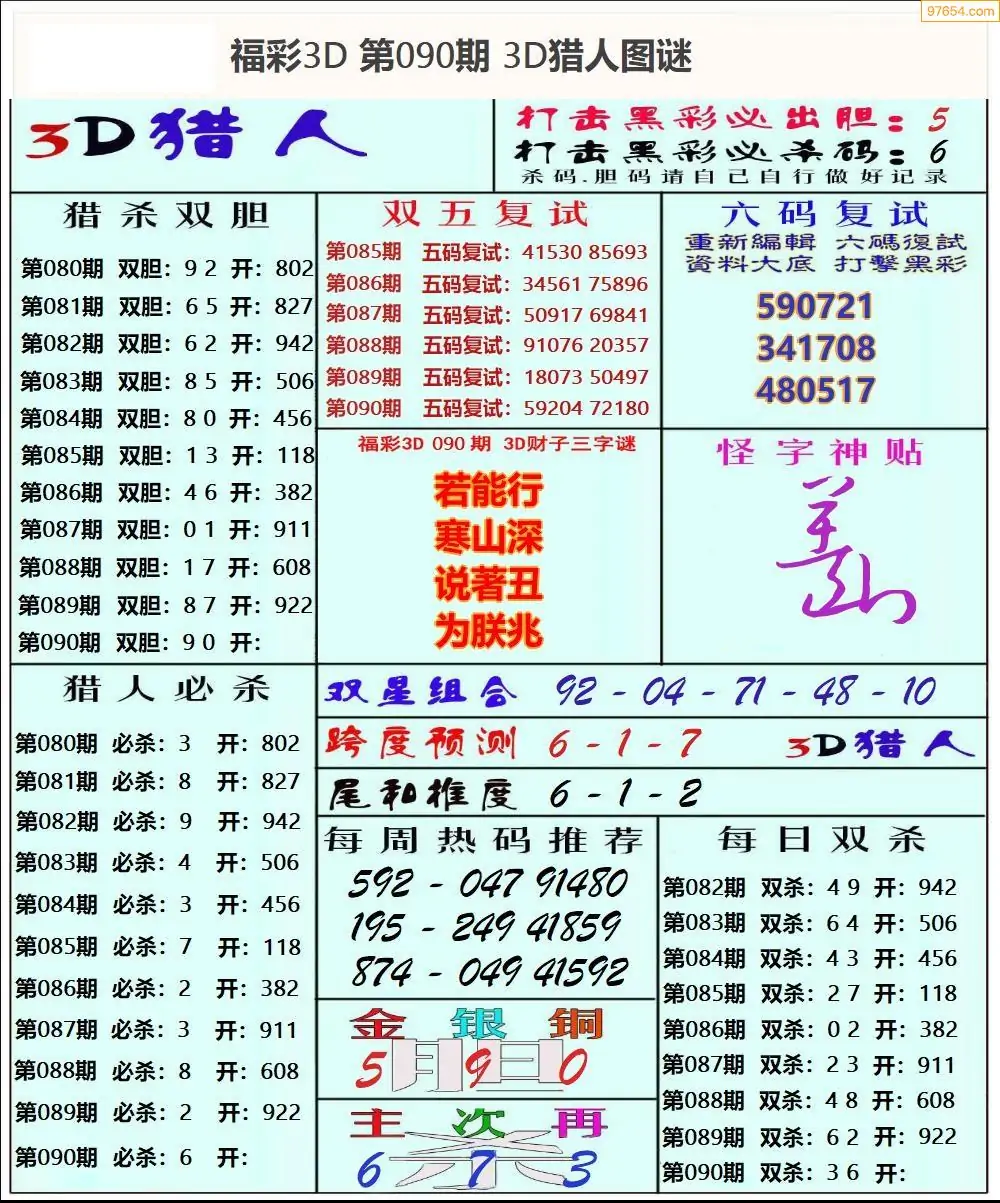 97654.com
福彩3D 第090期 3D猎人图谜
3D猎人
打击黑彩必出胆：5
打击黑彩必杀码：6
杀码.胆码请自己自行做好记录
猎杀双胆
第080期 双胆：9 2 开：802
第081期 双胆：6 5 开：827
第082期 双胆：6 2 开：942
第083期 双胆：8 5 开：506
第084期 双胆：8 0 开：456
第085期 双胆：1 3 开：118
第086期 双胆：4 6 开：382
第087期 双胆：0 1 开：911
第088期 双胆：1 7 开：608
第089期 双胆：8 7 开：922
第090期 双胆：9 0 开：
双五复试
第085期 五码复试：41530 85693
第086期 五码复试：34561 75896
第087期 五码复试：50917 69841
第088期 五码复试：91076 20357
第089期 五码复试：18073 50497
第090期 五码复试：59204 72180
六码复试
重新編輯 六碼復試
資料大底 打擊黑彩
590721
341708
480517
福彩3D 090 期 3D财子三字谜
若能行
寒山深
说著丑
为朕兆
怪字神贴
猎人必杀
第080期 必杀：3 开：802
第081期 必杀：8 开：827
第082期 必杀：9 开：942
第083期 必杀：4 开：506
第084期 必杀：3 开：456
第085期 必杀：7 开：118
第086期 必杀：2 开：382
第087期 必杀：3 开：911
第088期 必杀：8 开：608
第089期 必杀：2 开：922
第090期 必杀：6 开：
双星组合 92 - 04 - 71 - 48 - 10
跨度预测 6 - 1 - 7 3D猎人
尾和推度 6 - 1 - 2
每周热码推荐
592 - 047 91480
195 - 249 41859
874 - 049 41592
金银铜
胆
5 9 0
主次再
杀
6 7 3
每日双杀
第082期 双杀：4 9 开：942
第083期 双杀：6 4 开：506
第084期 双杀：4 3 开：456
第085期 双杀：2 7 开：118
第086期 双杀：0 2 开：382
第087期 双杀：2 3 开：911
第088期 双杀：4 8 开：608
第089期 双杀：6 2 开：922
第090期 双杀：3 6 开：